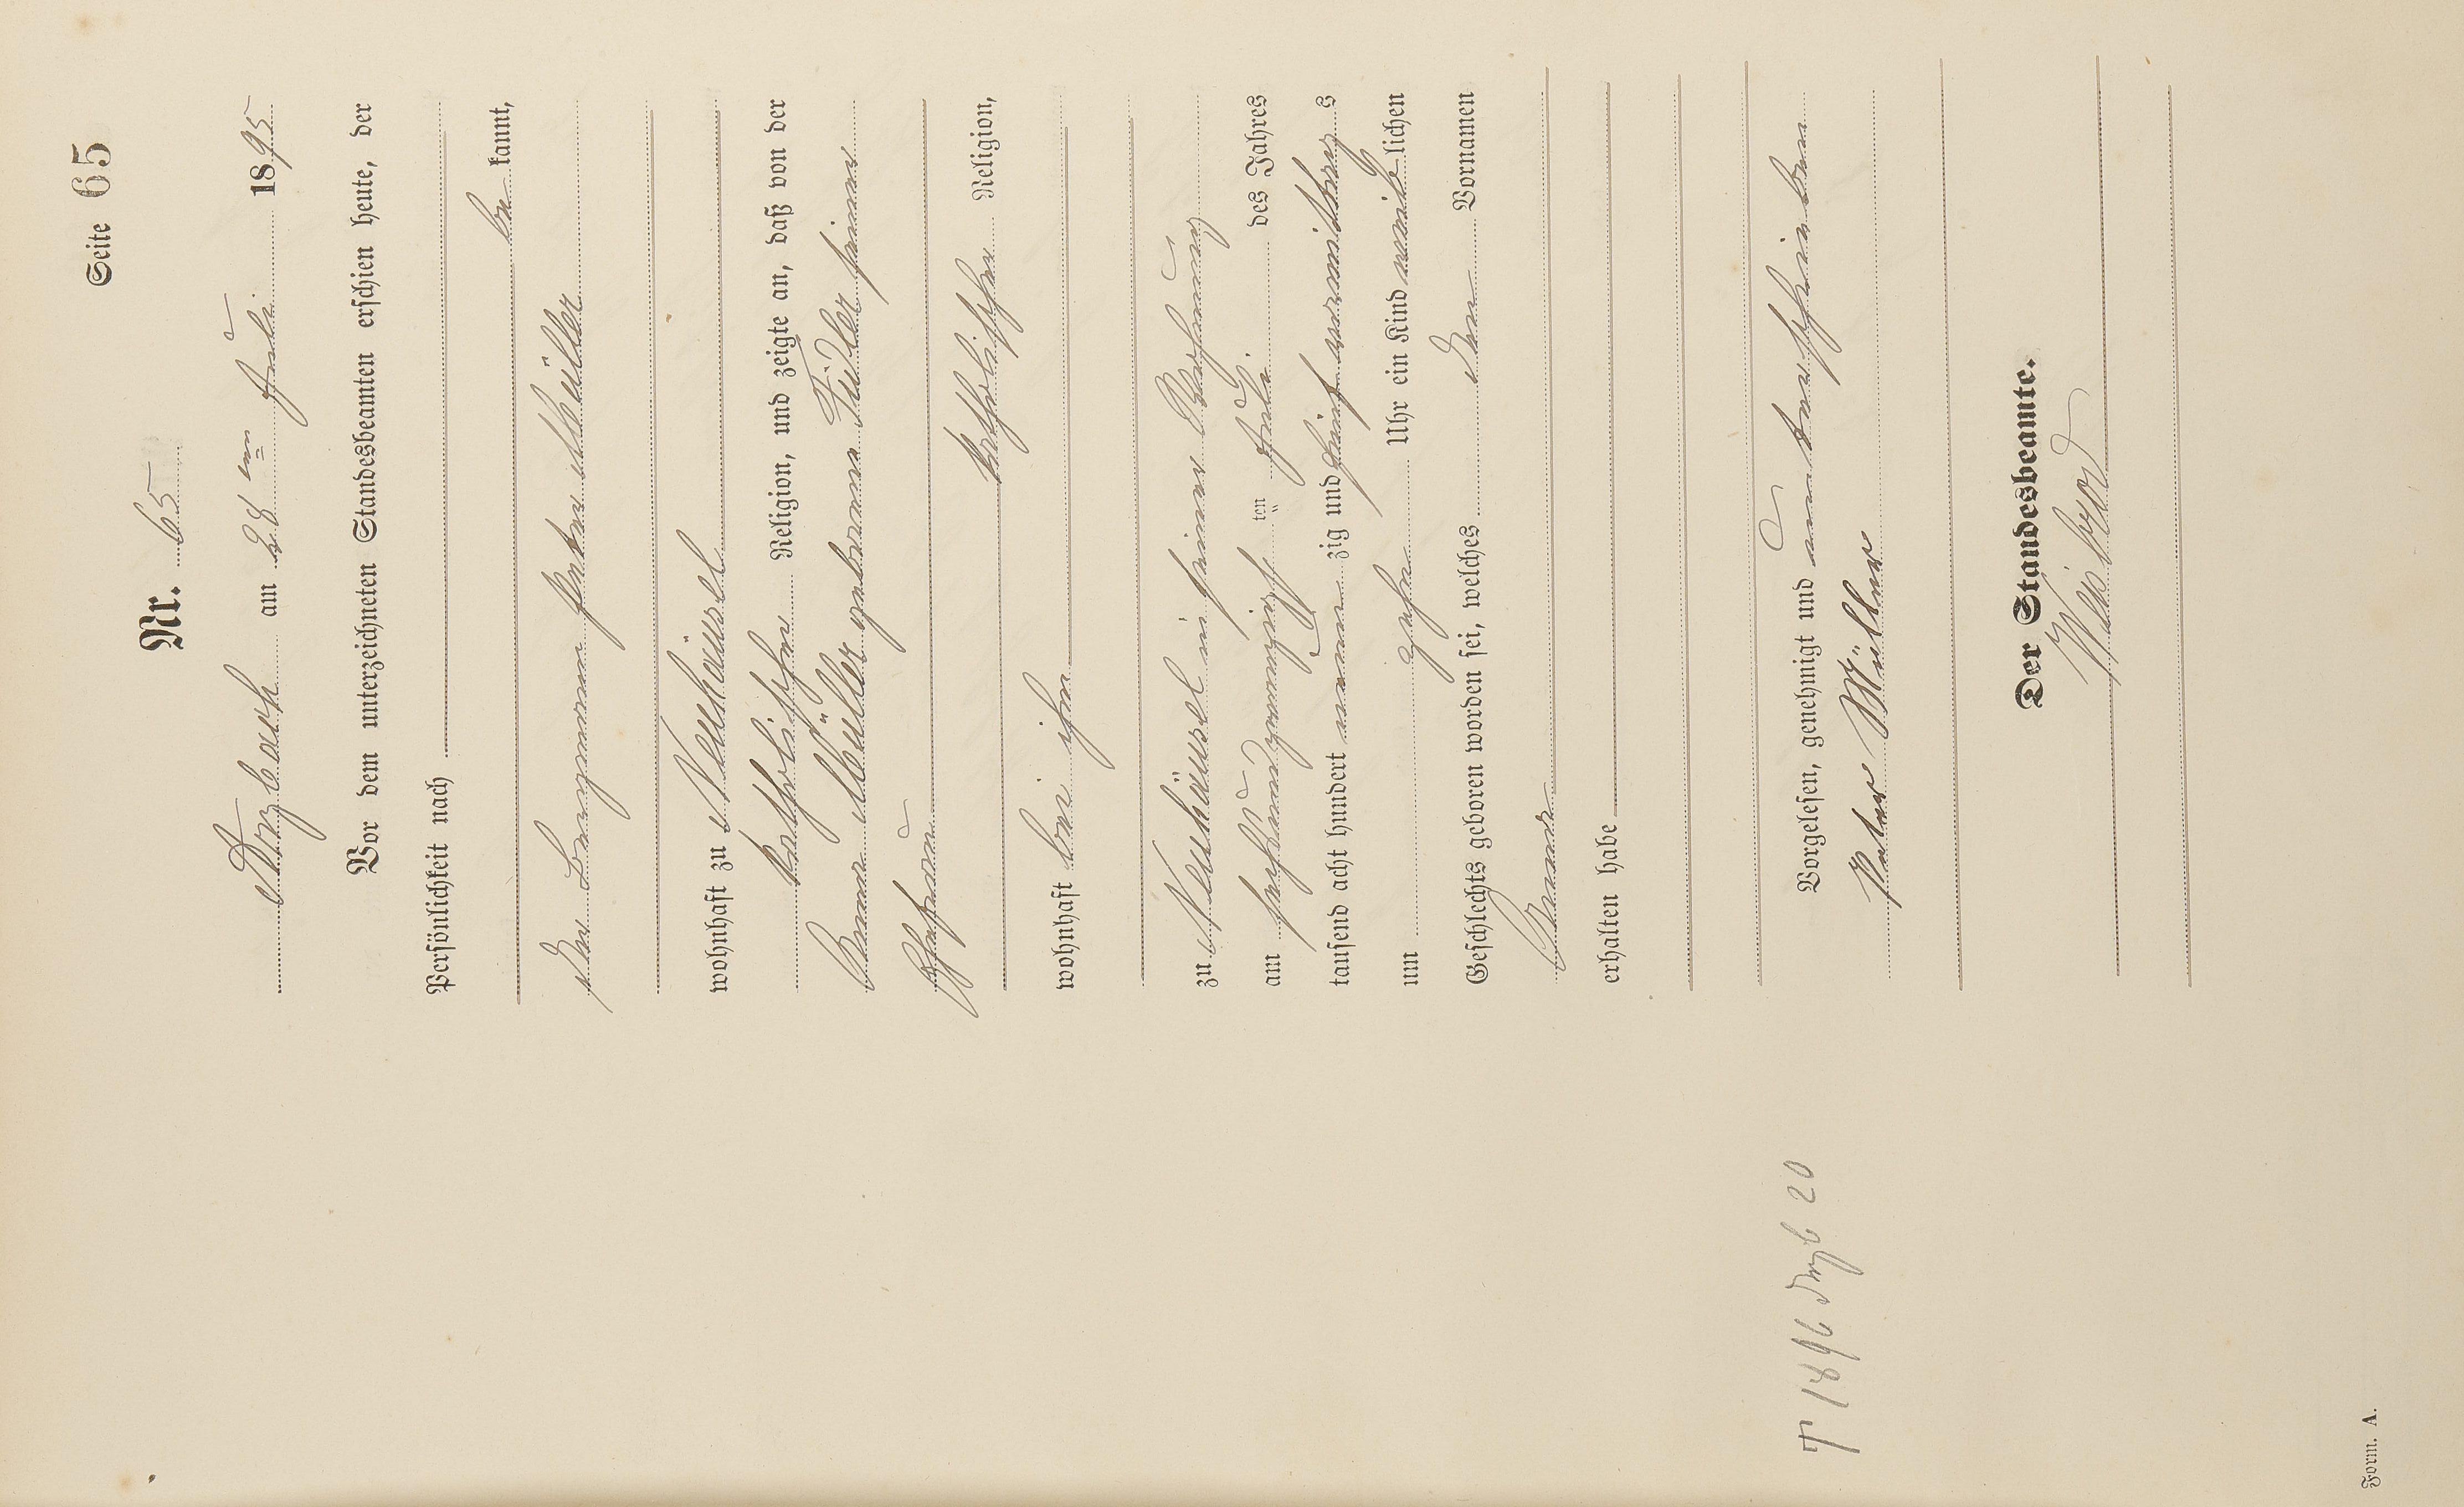 Seite 65
Nr. 65
Arzbach am 28ten Juli 1895
Vor dem unterzeichneten Standesbeamten erschien heute, der
Persönlichkeit nach
be kannt,
der Bergmann Peter Müller
wohnhaft zu Neuhäusel
katholischer Religion, und zeigte an, daß von der
Anna Müller geborene Fidler seiner
Ehefrau
katholischer Religion,
wohnhaft bei ihm
zu Neuhäusel in seiner Wohnung
am sechsundzwanzigsten Juli des Jahres
tausend acht hundert neun zig und fünf vormittags
um zehn Uhr ein Kind weiblichen
Geschlechts geboren worden sei, welches den Vornamen
Anna
erhalten habe
Vorgelesen, genehmigt und unterschrieben
Peter Müller
Der Standesbeamte.
Weisbrod
† 1896 Arzb 20
Form. A.